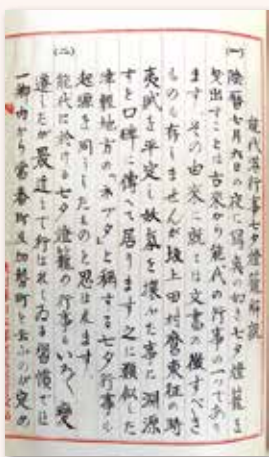 能代港行事七夕燈籠解説
(一)
陰暦七月六日の夜に鯱夷の如き七夕燈籠を
曳出すことは古来から能代の行事の一つであり
ます その由来に就ては文書の徴すべき
ものも存しませんが坂上田村麿東征の時
夷賊を平定し妖氣を壊った事に淵源
すと口碑に傳へて居ります之に類似した
津輕地方の「ネブタ」と稱する七夕行事も
起源を同うしたものと思はれます
(二)
能代に於ける七夕燈籠の行事もいろ〱變
遷したが最近まで行はれしゐる習慣では
一郷内から當番町及加勢町と云ふのが定め